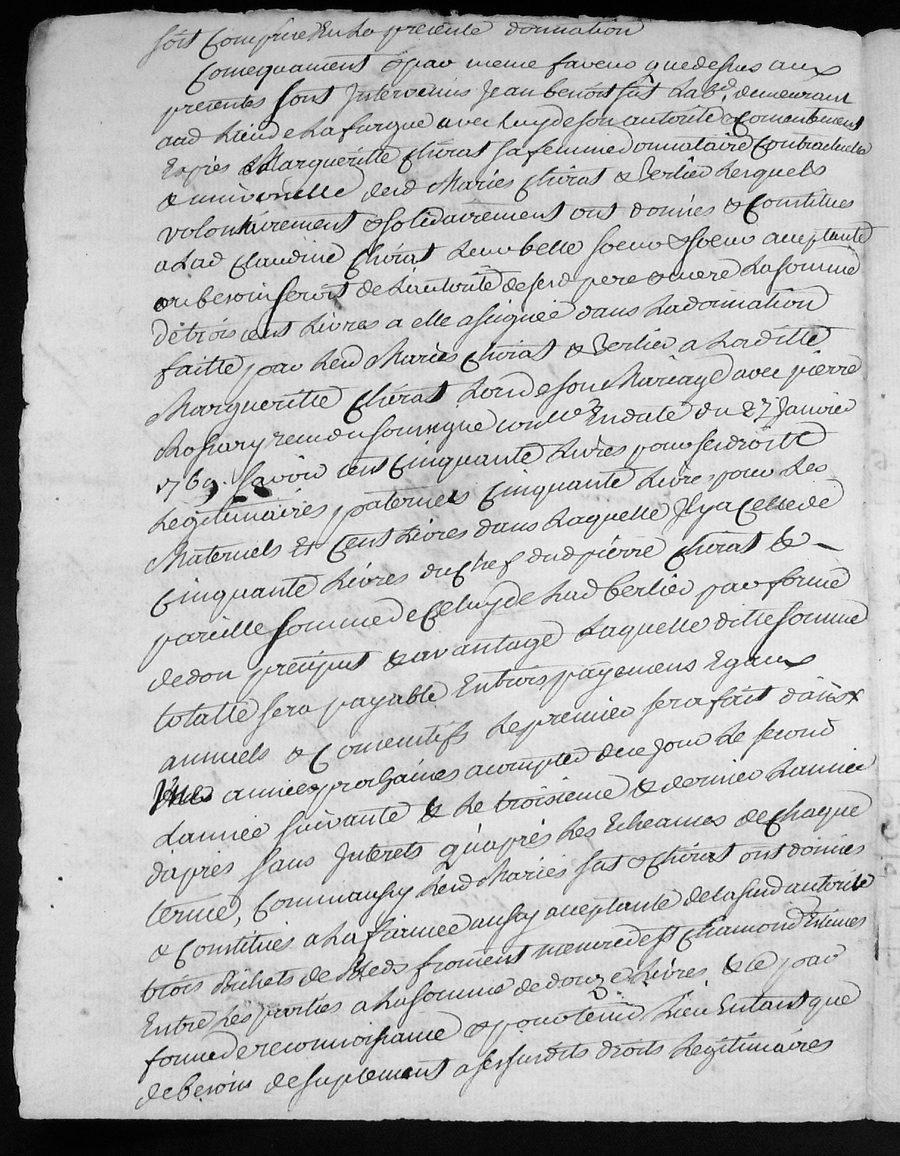 soit Comprise En La presente donnation
Consequament & par meme faveur que dessus aux
presentes sont Intervenus Jean benoit fat Labr. demeurant
aud Lieu de La furque avec Luy de son autorité & Consentement
Exprès Margueritte Chirat sa femme donnataire Contractuelle
& universelle desd Mariés Chirat & Berlier Lesquels
volontairement & solidairement ont donnés & Constitués
a Lad Claudine Chirat Leur belle soeur & soeur acceptante
au besoin seroit de L'autorité de sesd pere & mere La somme
de trois cent Livres a elle assignée dans La donnation
faitte par Lesd Mariés Chirat & Berlier a Laditte
Margueritte Chirat Lors de son Mariage avec pierre
recu du soussigné En date du 27 Janvier
1769. Savoir cent Cinquante Livres pour ses droits
Legitimaires paternels Cinquante Livres pour Les
Maternels Et Cent Livres dans Laquelle Il y a Celle de
Cinquante Livres du Chef dud pierre Chirat &
pareille somme de Celuy de Lad berlier par forme
de don preciput & avantage Laquelle ditte somme
totalle sera payable En trois payemens Egaux
annuels & Consecutifs Le premier sera fait dans
une année prochaines a compter de ce jour Le second
L'année suivante & Le troisieme & dernier L'année
d'après sans Interets qu'après Les Echeances de Chaque
terme, Comm'aussy Lesd Mariés fat & Chirat ont donnés
& Constitués a La fiancée aussy acceptante de La susd autorité
trois Bichets de Bleds froment mesure de St Chamond Estimés
Entre Les parties a La somme de douze Livres & ce par
forme de reconnoissance & pour tenir Lieu En tant que
de besoin de suplement a ses susdits droits Legitimaires